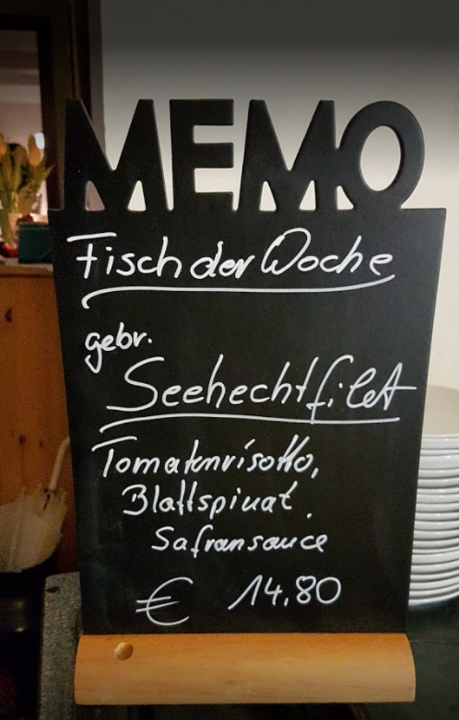 MEMO
Fisch der Woche
gebr.
Seehechtfilet
Tomatenrisotto,
Blattspinat.
Safransauce
€ 14.80